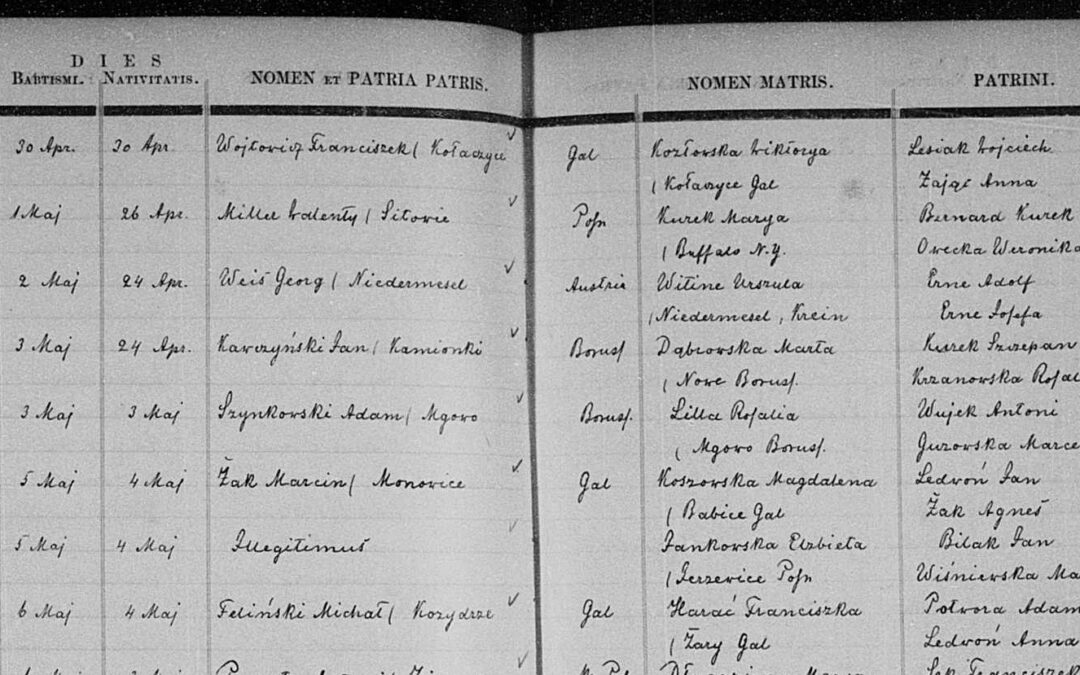 DIES
BAPTISMI. NATIVITATIS. NOMEN ET PATRIA PATRIS. NOMEN MATRIS. PATRINI.
30 Apr. 30 Apr. Wojtowicz Franciszek / Kołaczyce Gal Kozłowska Wiktorya Lesiak Wojciech
/ Kołaczyce Gal Zając Anna
1 Maj 26 Apr. Miller Walenty / Sitowie Posn Kurek Marya Bernard Kurek
/ Buffalo N.Y. Owecka Weronika
2 Maj 24 Apr. Weiś Georg / Niedermesel Austria Witine Urszula Erne Adolf
/ Niedermesel, Krein Erne Josefa
3 Maj 24 Apr. Kawczyński Jan / Kamionki Boruss. Dąbrowska Marta Kurek Szczepan
/ Nowe Boruss. Krzanowska Rosal
3 Maj 3 Maj Szynkowski Adam / Mgowo Boruss. Lilla Rosalia Wujek Antoni
/ Mgowo Boruss. Guzowska Marce
5 Maj 4 Maj Żak Marcin / Monowice Gal Koszowska Magdalena Ledwoń Jan
/ Babice Gal Żak Agneś
5 Maj 4 Maj Illegitimus Jankowska Elzbieta Bilak Jan
/ Jerzewice Posn Wiśniewska Ma
6 Maj 4 Maj Feliński Michał / Kozydrze Gal Harać Franciszka Potwora Adam
/ Żary Gal Ledwoń Anna